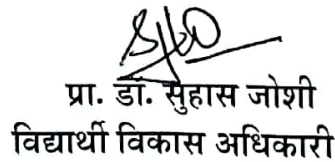 प्रा. डॉ. सुहास जोशी
विद्यार्थी विकास अधिकारी